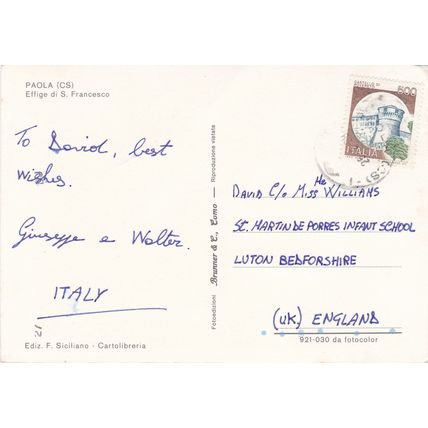 PAOLA (CS)
Effige di S. Francesco
To David, best
wishes.
Giuseppe e Walter.
ITALY
Ediz. F. Siciliano - Cartolibreria
Fotoedizioni Brunner & C., Como — Riproduzione vietata
500
ITALIA
DAVID C/o MISS WILLIAMS
ST. MARTIN DE PORRES INFANT SCHOOL
LUTON BEDFORSHIRE
(UK) ENGLAND
921-030 da fotocolor